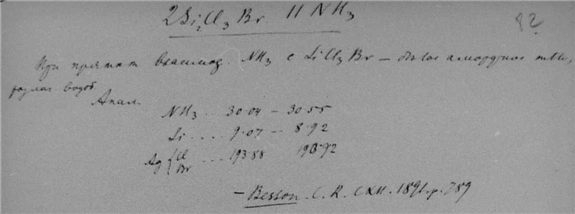 2SiCl₃Br 11NH₃
82
При прямом взаимод. NH₃ с SiCl₃Br — белое аморфное тело,
разлаг. водой.
Анал.
NH₃ .... 30.04 — 30.55
Si .... 9.07 — 8.92
Ag {Cl Br .... 193.88 193.92
— Besson. C. R. CXII. 1891. p. 789